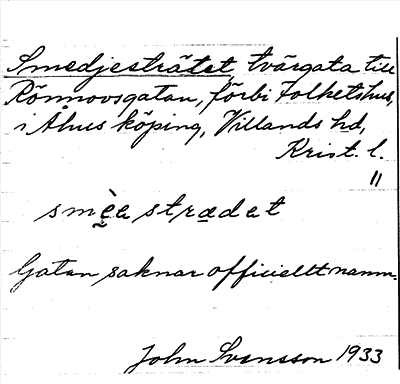 Smedjesträtet, tvärgata till
Rönnovsgatan, förbi Folketshus,
i Åhus köping, Villands hd,
Krist. l.
"
smèe strædet
Gatan saknar officiellt namn.
John Svensson 1933